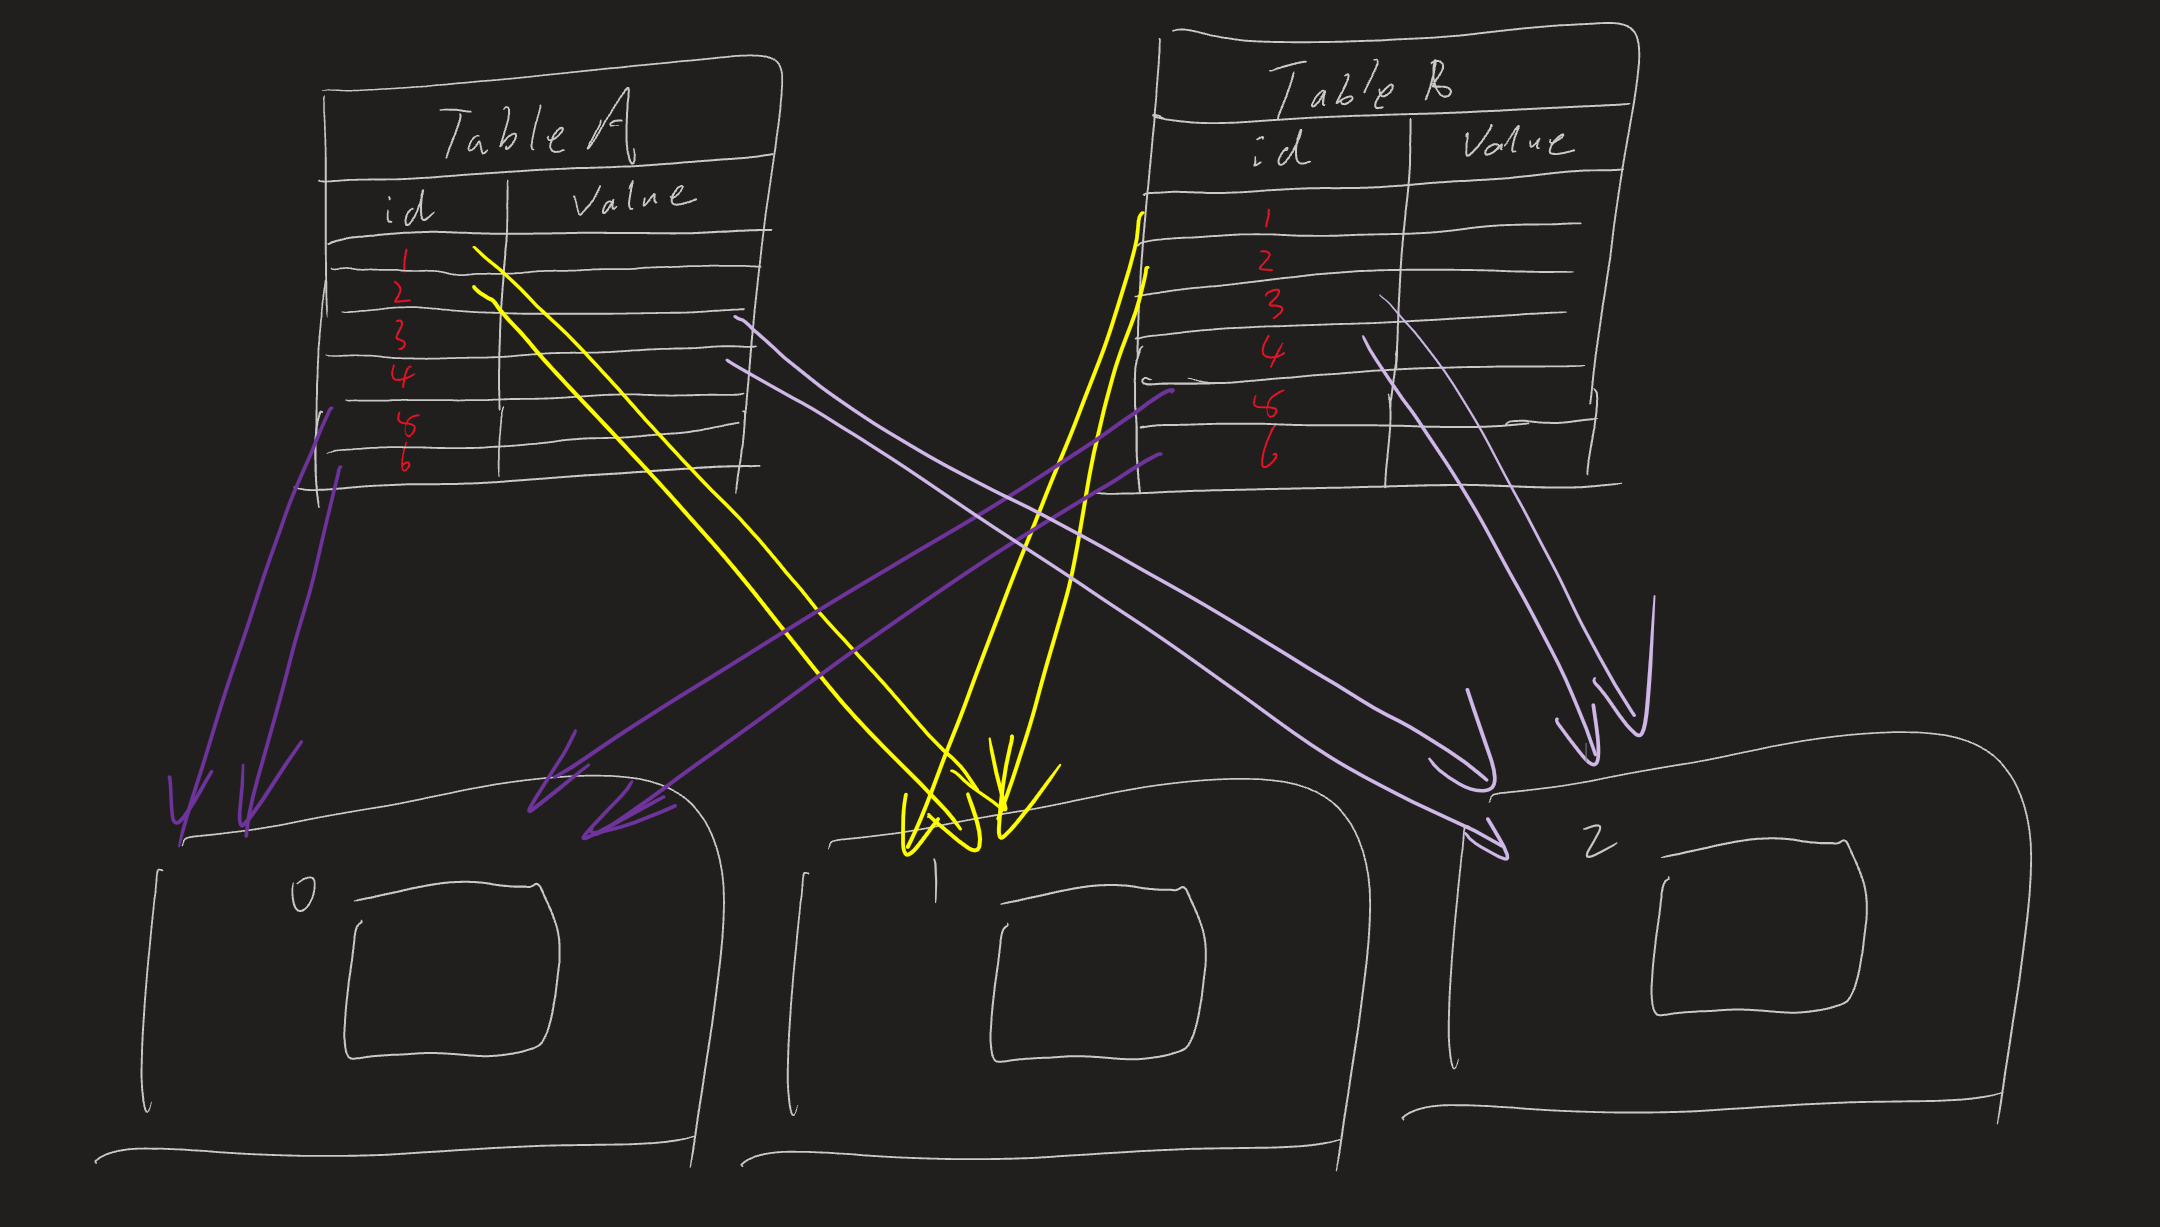 Table A
id Value
1
2
3
4
5
6
Table B
id Value
1
2
3
4
5
6
0
1
2